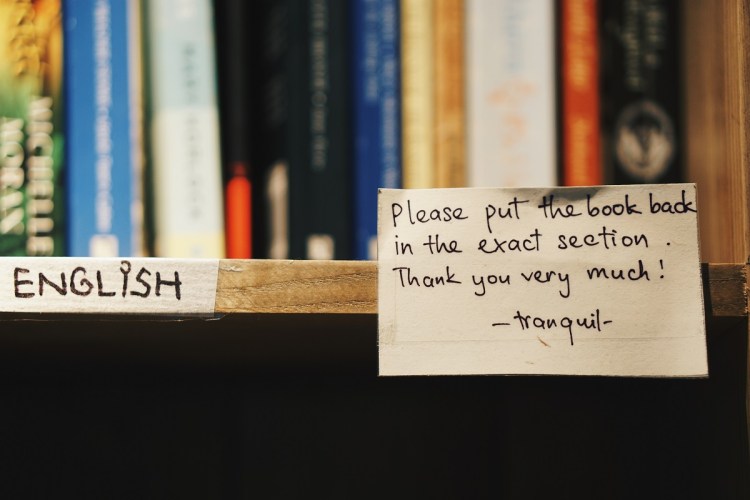 MICHELLE
MORAN
ENGLiSH
Please put the book back
in the exact section .
Thank you very much !
- tranquil -